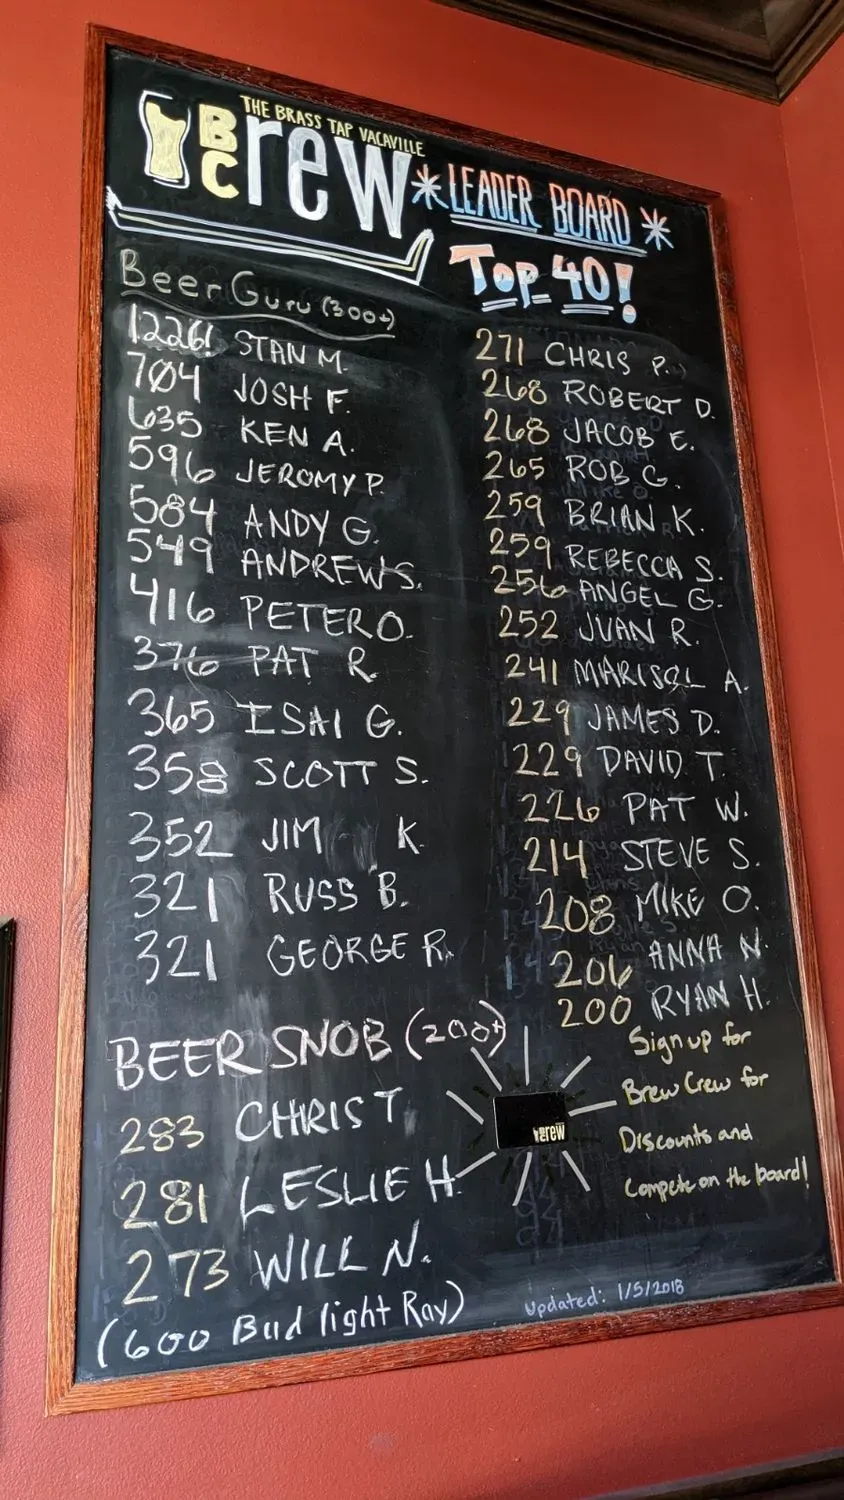 THE BRASS TAP VACAVILLE
BC Brew
* LEADER BOARD *
Top 40!
Beer Guru (300+)
1226! STAN M.
704 JOSH F.
635 KEN A.
596 JEROMY P.
584 ANDY G.
549 ANDREW S.
416 PETER O.
376 PAT R.
365 ISAI G.
358 SCOTT S.
352 JIM K.
321 RUSS B.
321 GEORGE R.
BEER SNOB (200+)
283 CHRIS T.
281 LESLIE H.
273 WILL N.
(600 Bud light Ray)
271 CHRIS P.
268 ROBERT D.
268 JACOB E.
265 ROB G.
259 BRIAN K.
259 REBECCA S.
256 ANGEL G.
252 JUAN R.
241 MARISOL A.
229 JAMES D.
229 DAVID T.
226 PAT W.
214 STEVE S.
208 MIKE O.
206 ANNA N.
200 RYAN H.
Sign up for
Brew Crew for
Discounts and
Compete on the board!
Updated: 1/5/2018